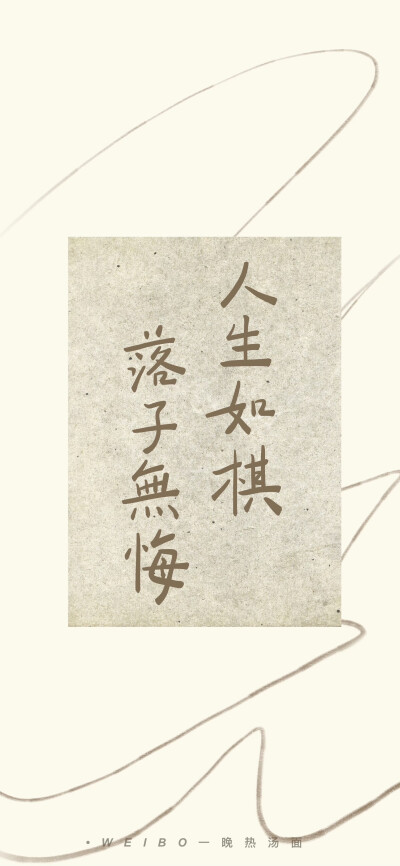 人生如棋
落子無悔
• WEIBO — 晚热汤面